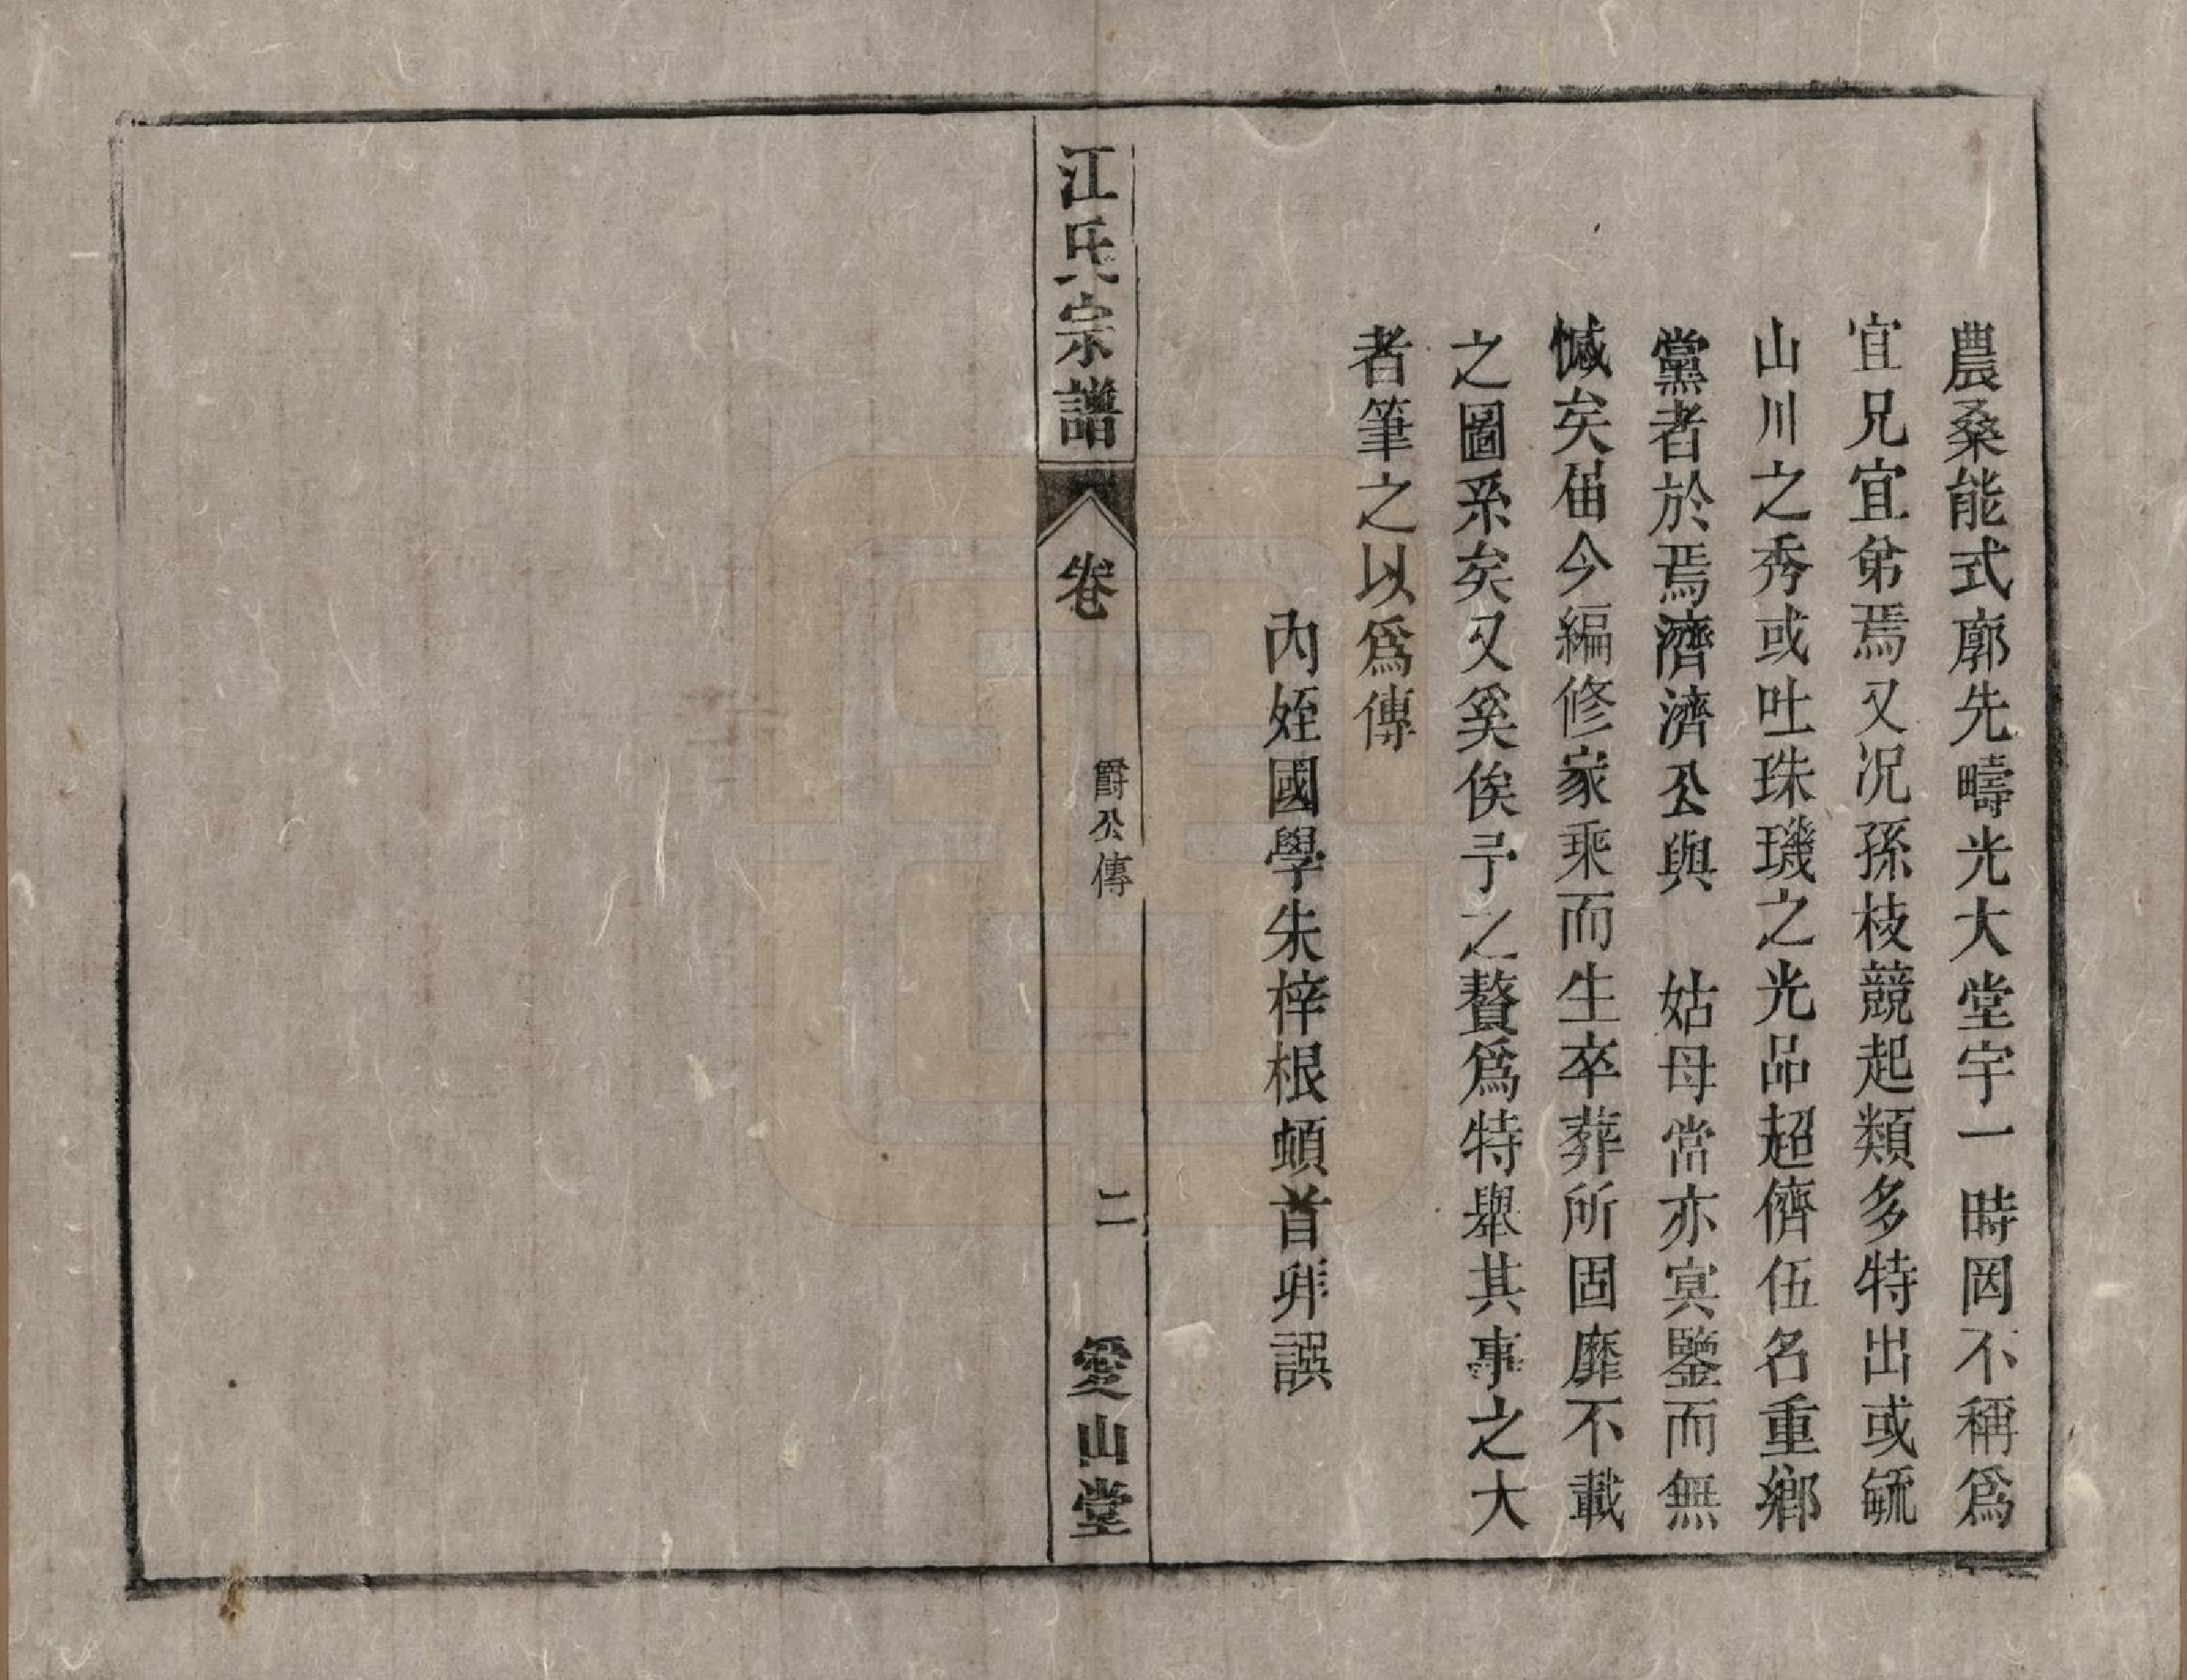 農桑能式廓先疇光大堂宇一時罔不稱爲
宜兄宜弟焉又况孫枝競起類多特出或毓
山川之秀或吐珠璣之光品超儕伍名重鄉
黨者於焉濟濟公與　姑母當亦㝠鑒而無
憾矣届今編修家乘而生卒葬所固靡不載
之圖系矣又奚俟予之贅爲特舉其事之大
者筆之以爲傳
內姪國學朱梓根頓首拜譔
江氏宗譜
卷
爵公傳
二
愛山堂